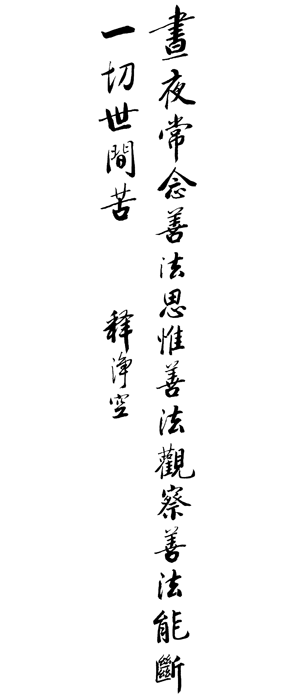 晝夜常念善法思惟善法觀察善法能斷
一切世間苦
釋淨空